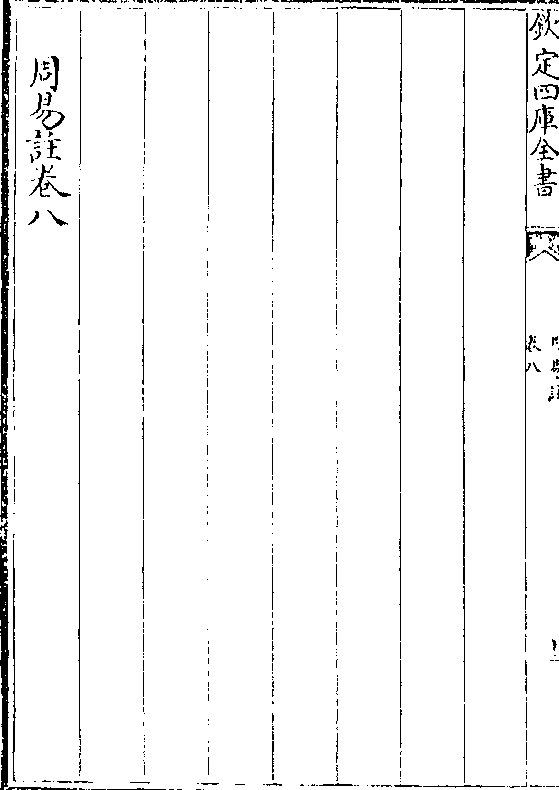 欽定四庫全書
卷八
周易註卷八